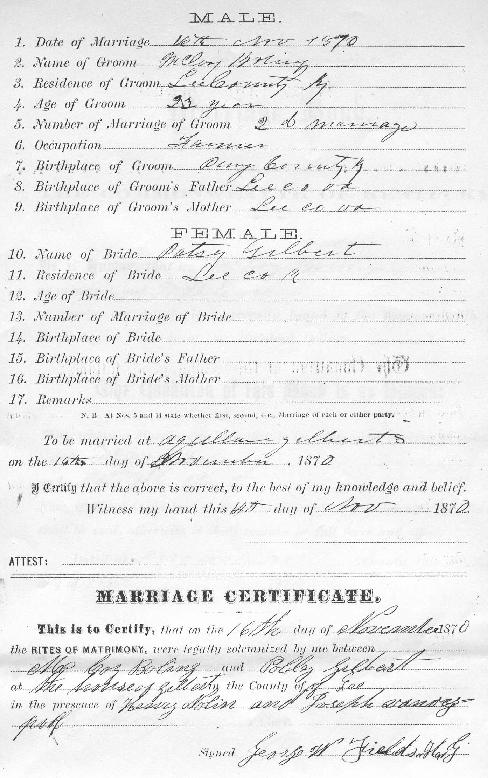 MALE.
1. Date of Marriage 16th Nov 1870
2. Name of Groom McCoy Boling
3. Residence of Groom Lee County Ky
4. Age of Groom 23 year
5. Number of Marriage of Groom 2 d marriage
6. Occupation Farmer
7. Birthplace of Groom County Ky
8. Birthplace of Groom's Father Lee co va
9. Birthplace of Groom's Mother Lee co va
FEMALE.
10. Name of Bride Patsy Gilbert
11. Residence of Bride Lee co K
12. Age of Bride
13. Number of Marriage of Bride
14. Birthplace of Bride
15. Birthplace of Bride's Father
16. Birthplace of Bride's Mother
17. Remarks
N. B. At Nos. 5 and 13 state whether first, second, etc., Marriage of each or either party.
To be married at gilberts
on the 16th day of November , 1870
I Certify that the above is correct, to the best of my knowledge and belief.
Witness my hand this day of Nov 1870
ATTEST:
MARRIAGE CERTIFICATE.
This is to Certify, that on the 16th day of November 1870
the RITES OF MATRIMONY, were legally solemnized by me between
Mc Coy Boling and Gilbert
at the house of the County of of Lee
in the presence of Harvey Nolin and Joseph
Signed George W Fields